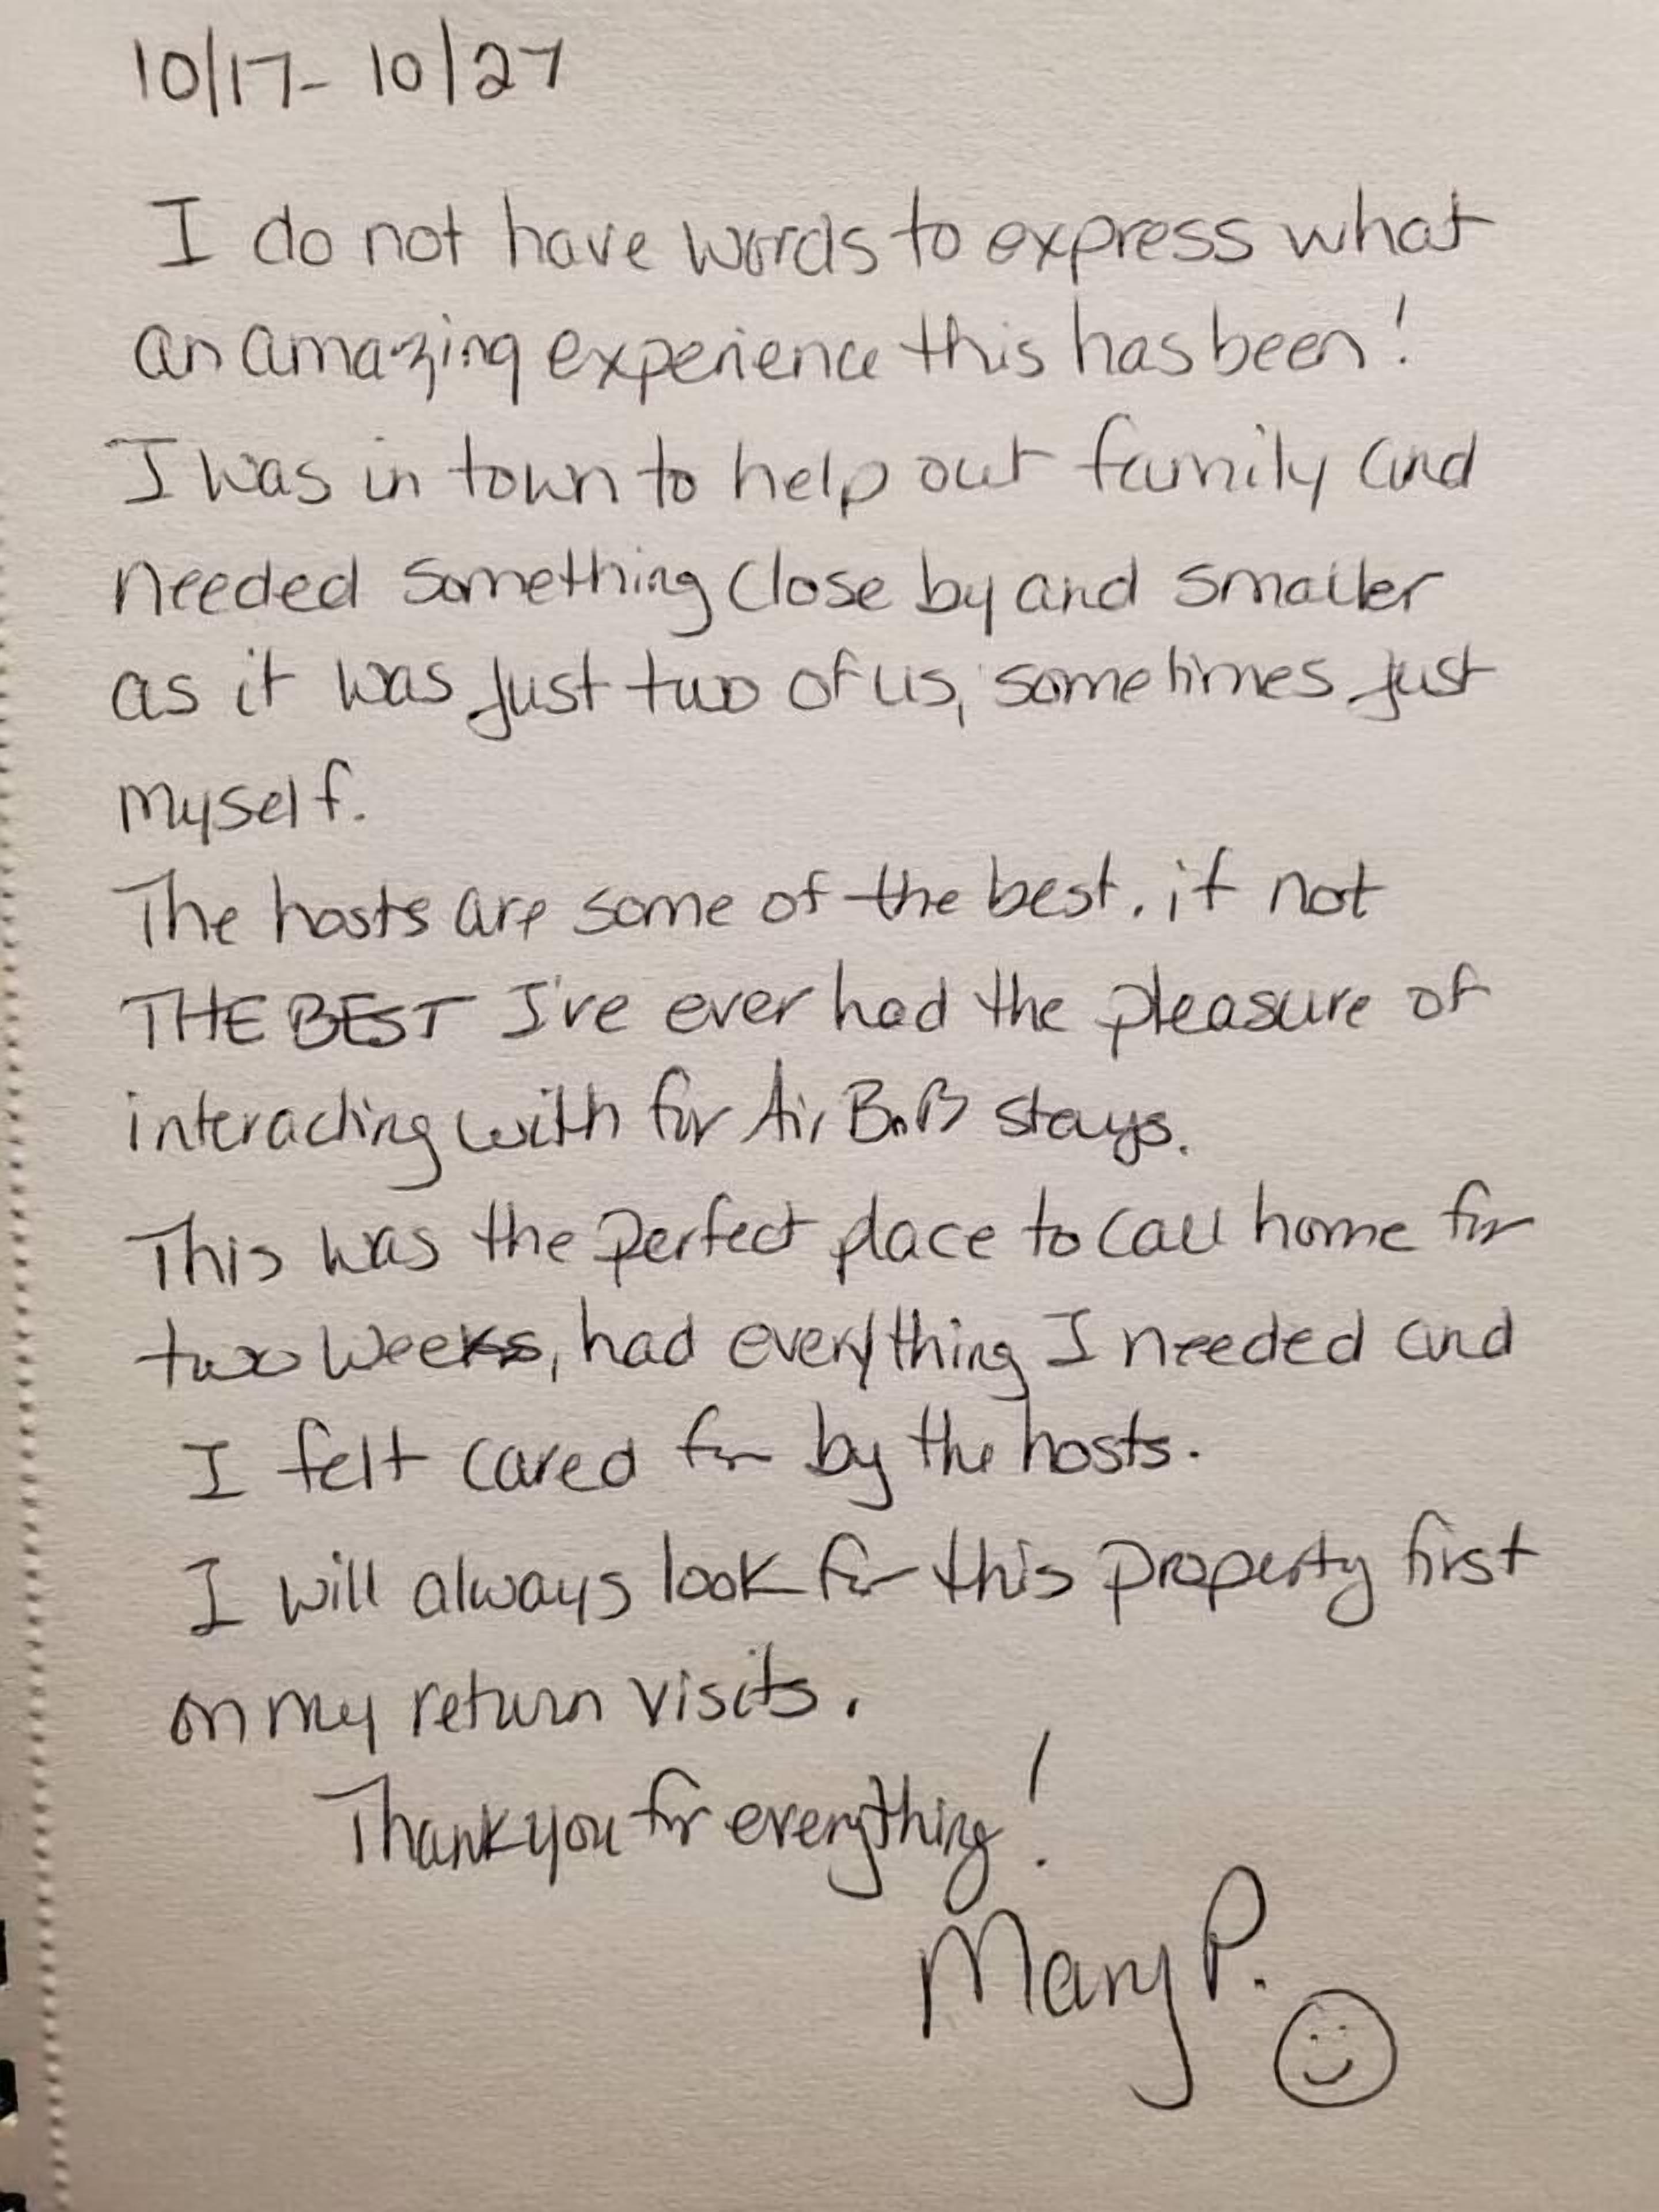 10/17- 10/27
I do not have words to express what
an amazing experience this has been!
I was in town to help out family and
needed something close by and smaller
as it was just two of us, sometimes just
myself.
The hosts are some of the best, if not
THE BEST I've ever had the pleasure of
interacting with for Air BnB stays.
This was the perfect place to call home for
two weeks, had everything I needed and
I felt cared for by the hosts.
I will always look for this property first
on my return visits.
Thank you for everything!
Mary P.